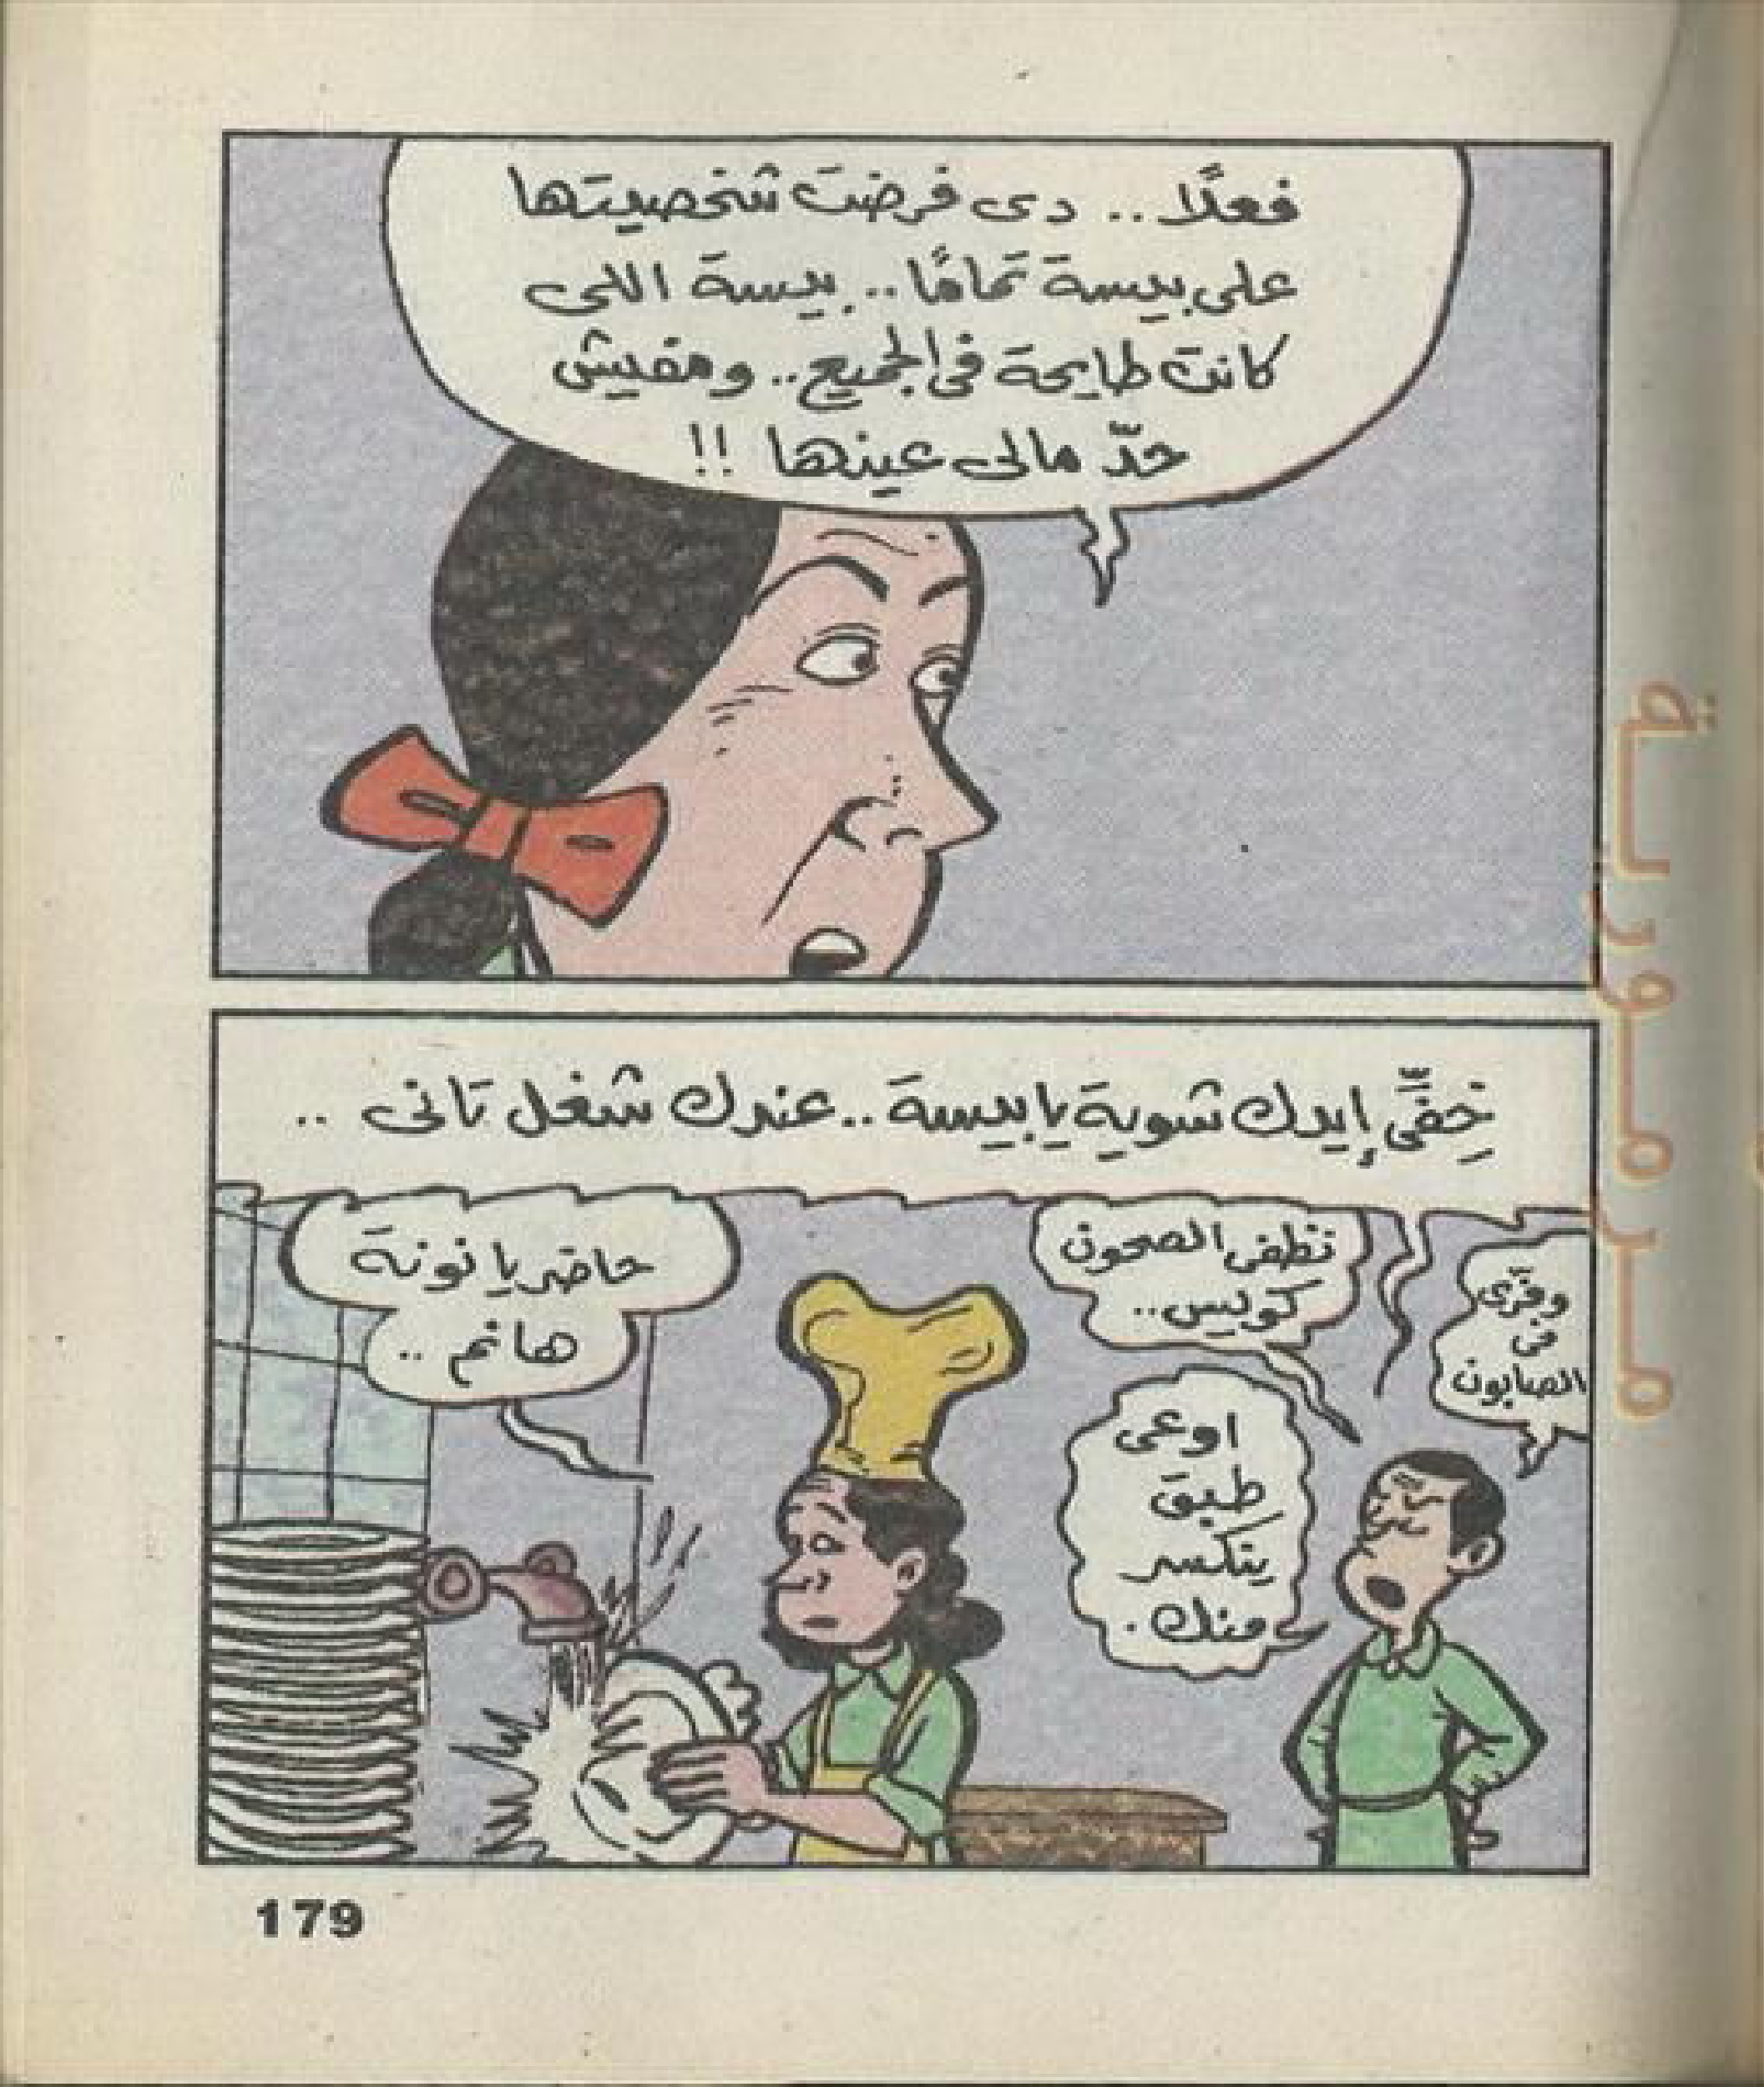 فعلًا.. دى فرضت شخصيتها
على بيسة تمامًا.. بيسة اللى
كانت طايحة فى الجميع.. ومفيش
حدّ مالى عينها !!
خِفِّى إيدك شوية يا بيسة.. عندك شغل تانى ..
وفّرى
فى
الصابون
نظفى الصحون
كويس..
اوعى
طبق
ينكسر
منك.
حاضر يا نونة
هانم ..
179
مرمورية